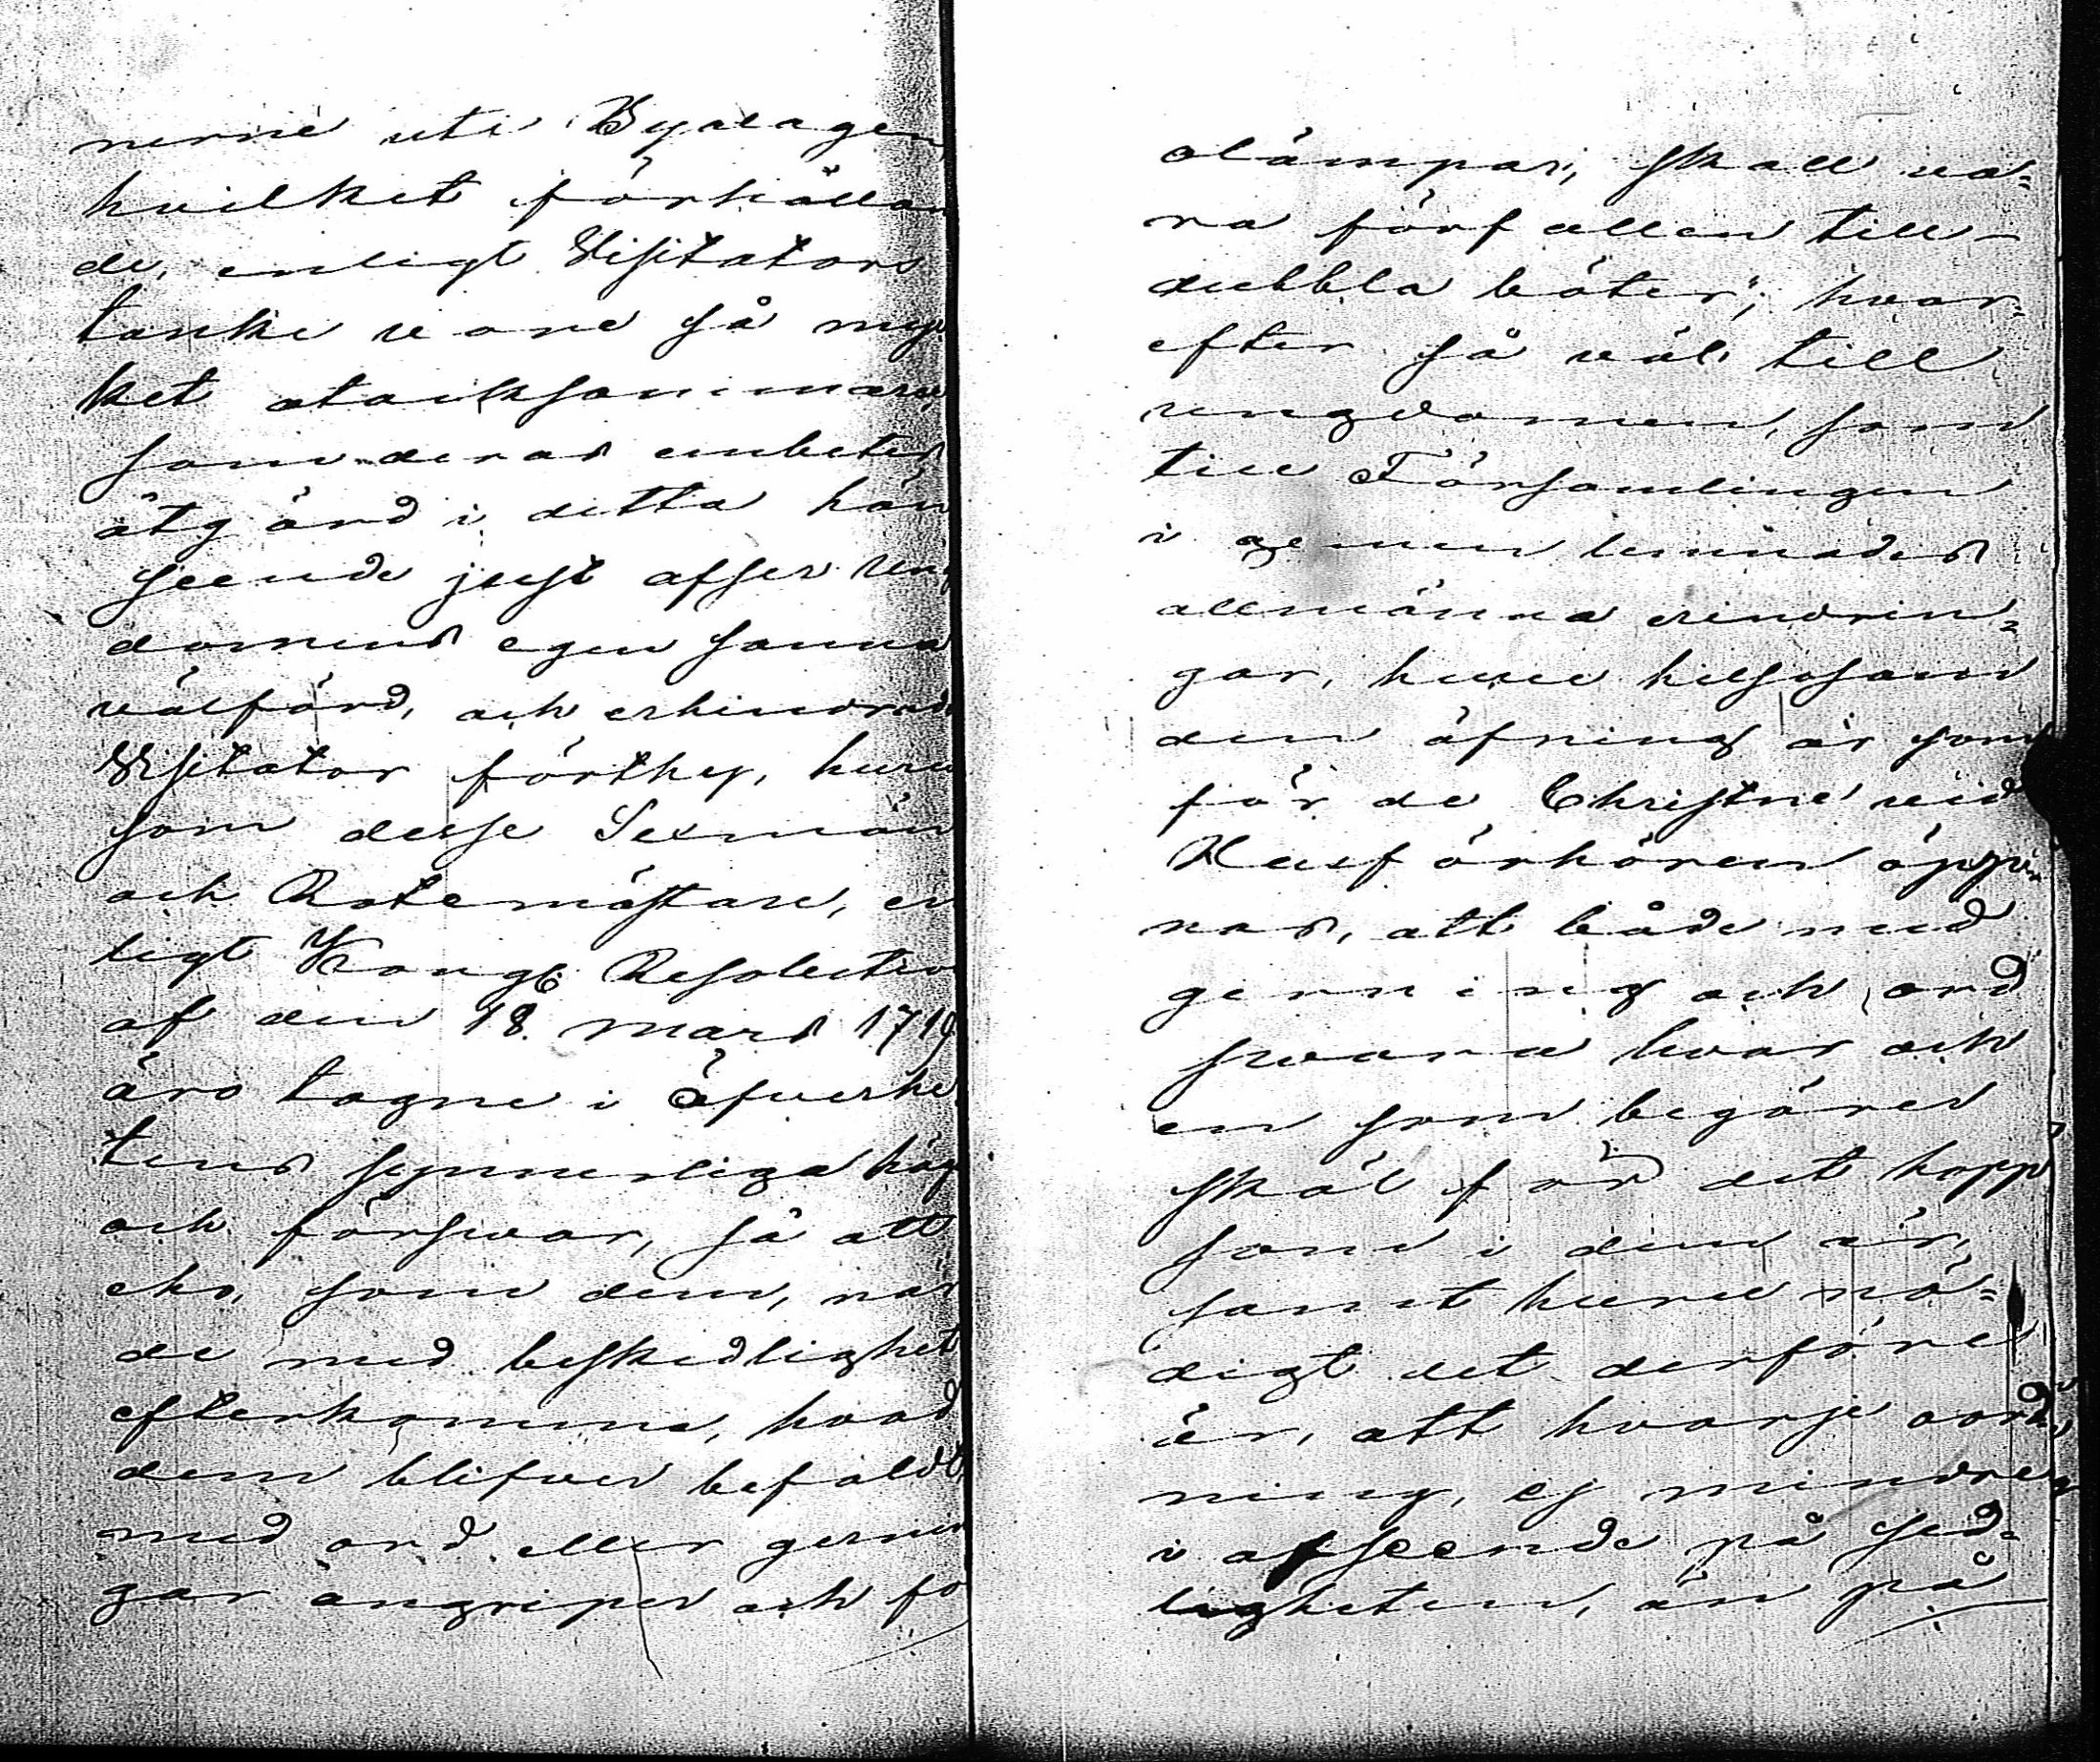 nerne uti Byalagen,
hvilket förhållan
de, enligt Visitators
tanke vore så myc
ket otacksammare,
som deras embetes
åtgärd i detta hän
seende just afser ung
domens egen sanna
välfärd, och erhindrade
Visitator förthy, huru
som desse Sexmän
och Rotemästare, en
ligt Kongl. Resolution
af den 18. Mars 1719
äro tagne i öfverhe
tens synnerliga hägn
och försvar, så att
eho, som dem, när
de med beskedlighet
efterkomma, hvad
dem blifver befaldt,
med ord eller gernin
gar angriper och fö
olämpar, skall va=
ra förfallen till
dubbla böter; hvar=
efter så väl till
ungdomen, som
till Församlingen
i gemen lemnades
allmänna erindrin=
gar, huru helsosam
den öfning är som
för de Christne vid
Husförhören öpp
nas, att både med
gerning och ord
svara hvar och
en som begärer
skäl för det hopp
som i dem är,
samt huru nö=
digt det derföre
är, att hvarje oord
ning, ej mindre
i afseende på sed=
ligheten, än på